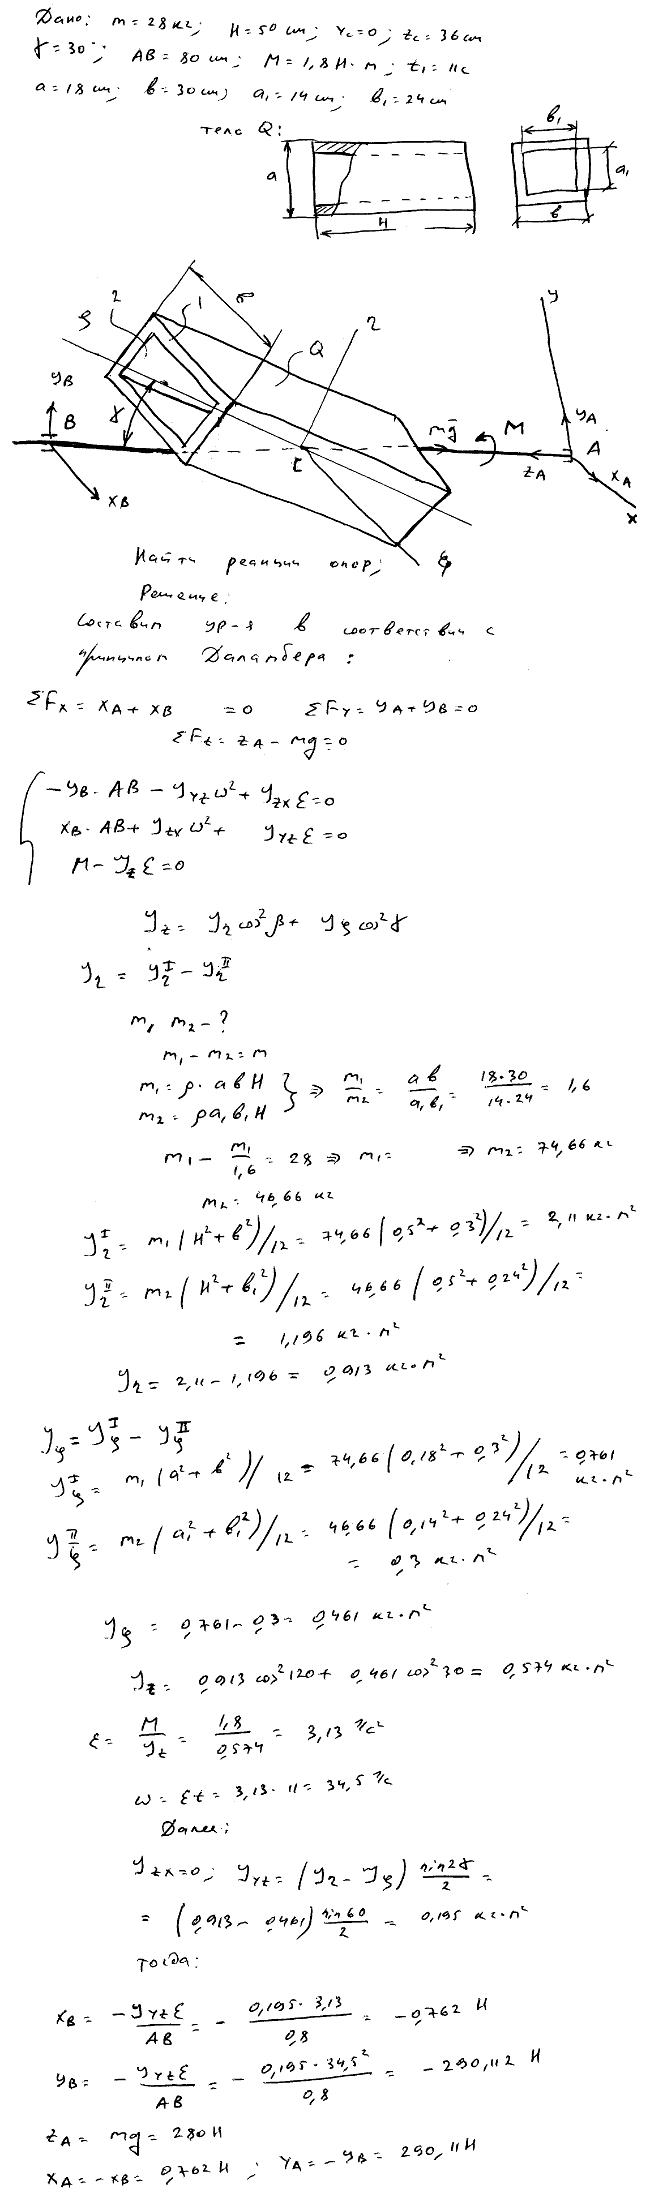 Дано: m = 28 кг; H = 50 см; Yc = 0; zc = 36 см
γ = 30°; AB = 80 см; M = 1,8 Н·м; t₁ = 11 с
a = 18 см; в = 30 см; a₁ = 14 см; в₁ = 24 см
тело Q:
a
H
в₁
a₁
в
2
1
Q
η
y
yB
B
γ
xB
C
mg
M
zA
yA
A
xA
x
Найти реакции опор;
Решение:
Составим ур-я в соответствии с
принципом Даламбера:
ΣFx = xA + xB = 0 ΣFY = yA + yB = 0
ΣFz = zA - mg = 0
-yB · AB - Jyz ω² + Jzx ε = 0
xB · AB + Jzx ω² + Jyz ε = 0
M - Jz ε = 0
Jz = Jη cos²β + Jξ cos²γ
Jη = JηI - JηII
m₁ m₂ - ?
m₁ - m₂ = m
m₁ = ρ · a в H } ⇒ m₁/m₂ = aв/a₁в₁ = 18·30/14·24 = 1,6
m₂ = ρ a₁ в₁ H
m₁ - m₁/1,6 = 28 ⇒ m₁ = ⇒ m₂ = 74,66 кг
m₂ = 46,66 кг
JηI = m₁ (H² + в²)/12 = 74,66 (0,5² + 0,3²)/12 = 2,11 кг·м²
JηII = m₂ (H² + в₁²)/12 = 46,66 (0,5² + 0,24²)/12 =
= 1,196 кг·м²
Jη = 2,11 - 1,196 = 0,913 кг·м²
Jξ = JξI - JξII
JξI = m₁ (a² + в²)/12 = 74,66 (0,18² + 0,3²)/12 = 0,761 кг·м²
JξII = m₂ (a₁² + в₁²)/12 = 46,66 (0,14² + 0,24²)/12 =
= 0,3 кг·м²
Jξ = 0,761 - 0,3 = 0,461 кг·м²
Jz = 0,913 cos²120 + 0,461 cos²30 = 0,574 кг·м²
ε = M/Jz = 1,8/0,574 = 3,13 1/с²
ω = εt = 3,13 · 11 = 34,5 1/с
Далее:
Jzx = 0; Jyz = (Jη - Jξ) sin2γ/2 =
= (0,913 - 0,461) sin60/2 = 0,195 кг·м²
тогда:
xB = -Jyz ε/AB = - 0,195 · 3,13/0,8 = -0,762 Н
yB = -Jyz ε/AB = - 0,195 · 34,5²/0,8 = -290,112 Н
zA = mg = 280 Н
xA = -xB = 0,762 Н; YA = -yB = 290,11 Н